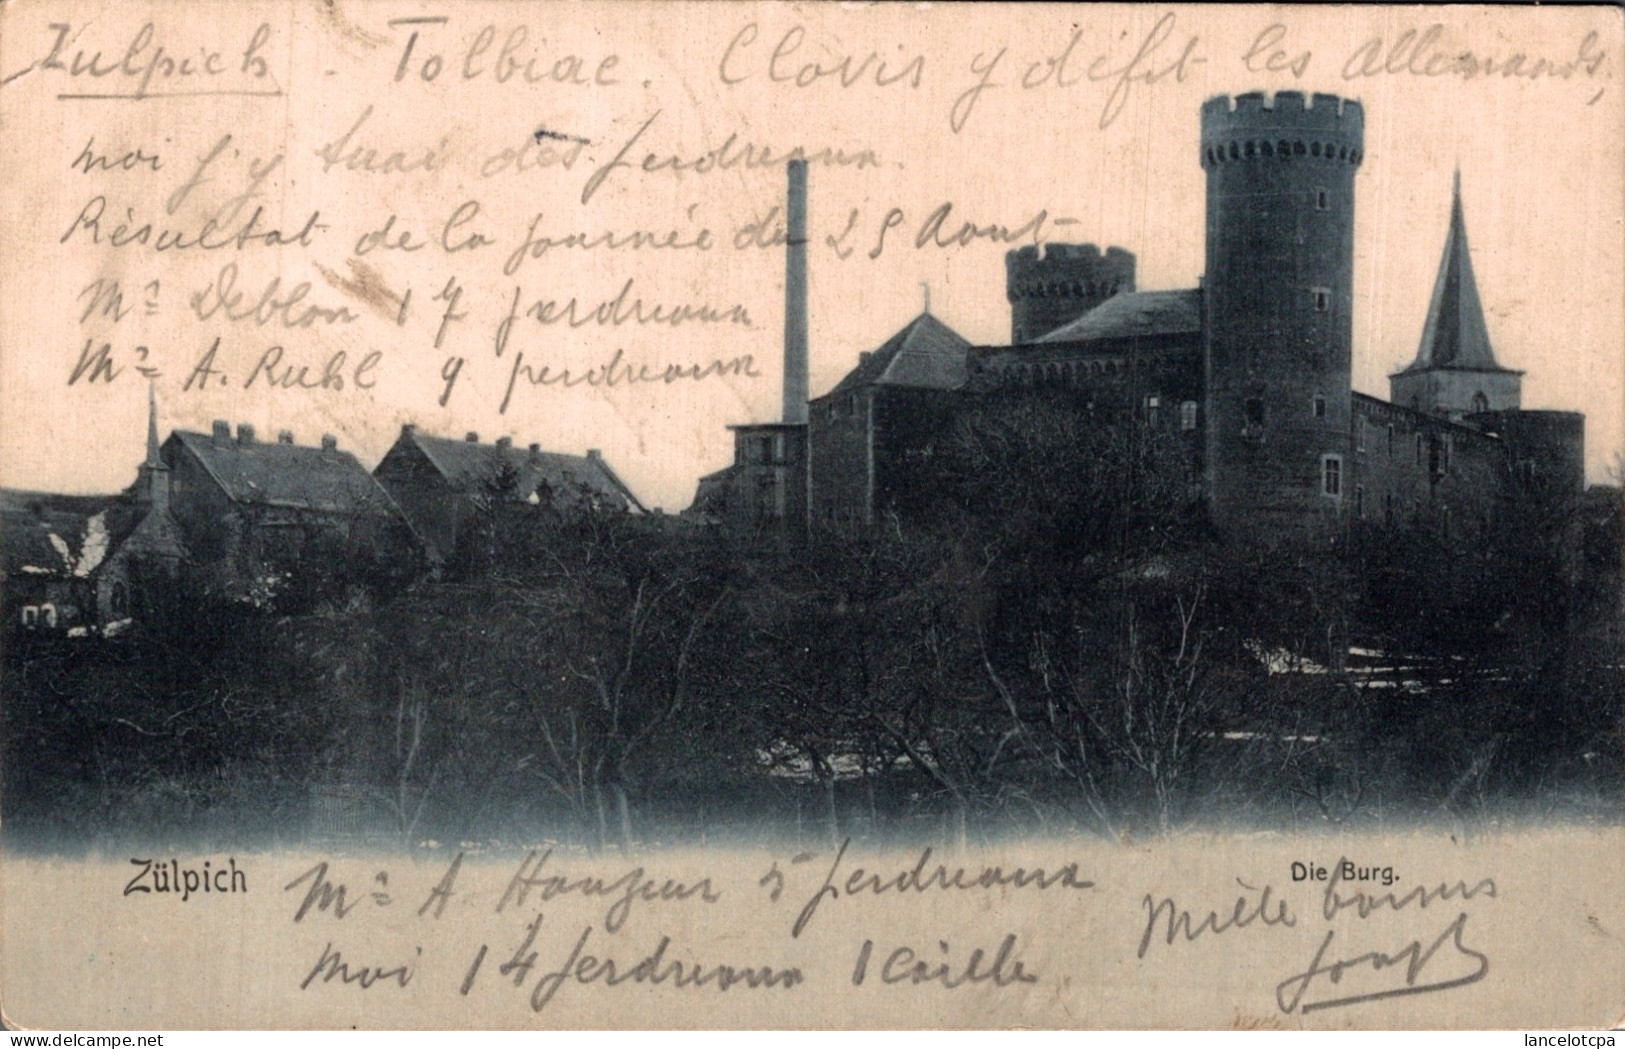 Zulpich - Tolbiac. Clovis y défit les Allemands,
moi j'y tuai des perdreaux.
Résultat de la journée du 25 Aout
Mr Deblon 17 perdreaux
Mr A. Ruhl 9 perdreaux
Zülpich
Die Burg.
Mr A. Hauzeur 5 perdreaux
Moi 14 perdreaux 1 caille
Mille baisers
Joseph
www.delcampe.net
lancelotcpa